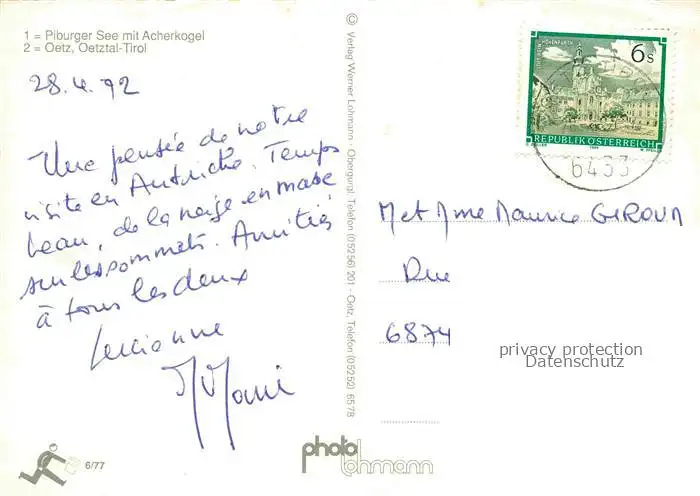 1 = Piburger See mit Acherkogel
2 = Oetz, Oetztal-Tirol
28.4.92
Une pensée de notre
visite en Autriche. Temps
beau, de la neige en masse
sur les sommets. Amitiés
à tous les deux
Lucienne
6/77
© Verlag Werner Lohmann · Obergurgl, Telefon (05256) 201 · Oetz, Telefon (05252) 6578
photo
lohmann
6s
STIFT REIN-HOHENFURTH
REPUBLIK ÖSTERREICH
6433
M et Mme Maurice GIROUD
Rue
6874
privacy protection
Datenschutz